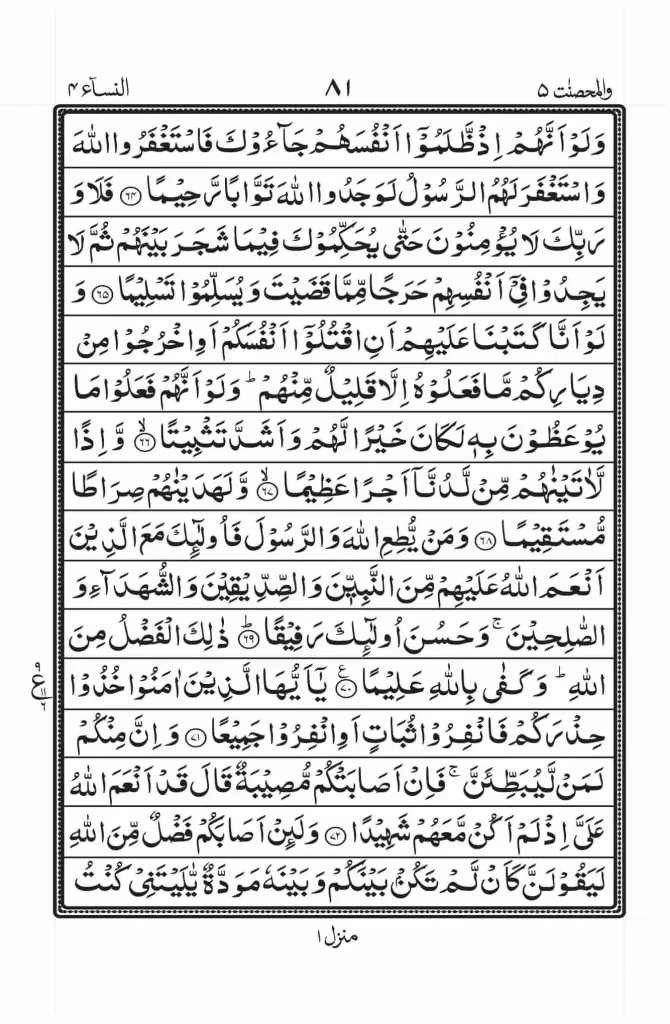 والمحصنٰت ۵ ۸۱ النسآء ۴
وَلَوۡ اَنَّهُمۡ اِذۡ ظَّلَمُوۡۤا اَنۡفُسَهُمۡ جَآءُوۡكَ فَاسۡتَغۡفَرُوا اللّٰهَ
وَاسۡتَغۡفَرَ لَهُمُ الرَّسُوۡلُ لَوَجَدُوا اللّٰهَ تَوَّابًا رَّحِيۡمًا ﴿۶۴﴾ فَلَا وَ
رَبِّكَ لَا يُؤۡمِنُوۡنَ حَتّٰى يُحَكِّمُوۡكَ فِيۡمَا شَجَرَ بَيۡنَهُمۡ ثُمَّ لَا
يَجِدُوۡا فِىۡۤ اَنۡفُسِهِمۡ حَرَجًا مِّمَّا قَضَيۡتَ وَيُسَلِّمُوۡا تَسۡلِيۡمًا ﴿۶۵﴾ وَ
لَوۡ اَنَّا كَتَبۡنَا عَلَيۡهِمۡ اَنِ اقۡتُلُوۡۤا اَنۡفُسَكُمۡ اَوِ اخۡرُجُوۡا مِنۡ
دِيَارِكُمۡ مَّا فَعَلُوۡهُ اِلَّا قَلِيۡلٌ مِّنۡهُمۡ‌ؕ وَلَوۡ اَنَّهُمۡ فَعَلُوۡا مَا
يُوۡعَظُوۡنَ بِهٖ لَـكَانَ خَيۡرًا لَّهُمۡ وَاَشَدَّ تَثۡبِيۡتًا ۙ‏﴿۶۶﴾ وَّاِذًا
لَّاٰتَيۡنٰهُمۡ مِّنۡ لَّدُنَّاۤ اَجۡرًا عَظِيۡمًا ۙ‏﴿۶۷﴾ وَّلَهَدَيۡنٰهُمۡ صِرَاطًا
مُّسۡتَقِيۡمًا ﴿۶۸﴾ وَمَنۡ يُّطِعِ اللّٰهَ وَالرَّسُوۡلَ فَاُولٰٓٮِٕكَ مَعَ الَّذِيۡنَ
اَنۡعَمَ اللّٰهُ عَلَيۡهِمۡ مِّنَ النَّبِيّٖنَ وَالصِّدِّيۡقِيۡنَ وَالشُّهَدَآءِ وَ
الصّٰلِحِيۡنَ‌ ۚ وَحَسُنَ اُولٰٓٮِٕكَ رَفِيۡقًا ؕ‏﴿۶۹﴾ ذٰ لِكَ الۡفَضۡلُ مِنَ
اللّٰهِ‌ ؕ وَكَفٰى بِاللّٰهِ عَلِيۡمًا ﴿۷۰﴾ ع يٰۤـاَيُّهَا الَّذِيۡنَ اٰمَنُوۡا خُذُوۡا
حِذۡرَكُمۡ فَانْفِرُوۡا ثُبَاتٍ اَوِ انْفِرُوۡا جَمِيۡعًا ﴿۷۱﴾ وَاِنَّ مِنۡكُمۡ
لَمَنۡ لَّيُبَطِّئَنَّ‌ۚ فَاِنۡ اَصَابَتۡكُمۡ مُّصِيۡبَةٌ قَالَ قَدۡ اَنۡعَمَ اللّٰهُ
عَلَىَّ اِذۡ لَمۡ اَكُنۡ مَّعَهُمۡ شَهِيۡدًا ﴿۷۲﴾ وَلَٮِٕنۡ اَصَابَكُمۡ فَضۡلٌ مِّنَ اللّٰهِ
لَيَقُوۡلَنَّ كَاَنۡ لَّمۡ تَكُنۡۢ بَيۡنَكُمۡ وَبَيۡنَهٗ مَوَدَّةٌ يّٰلَيۡتَنِىۡ كُنۡتُ
منزل ۱